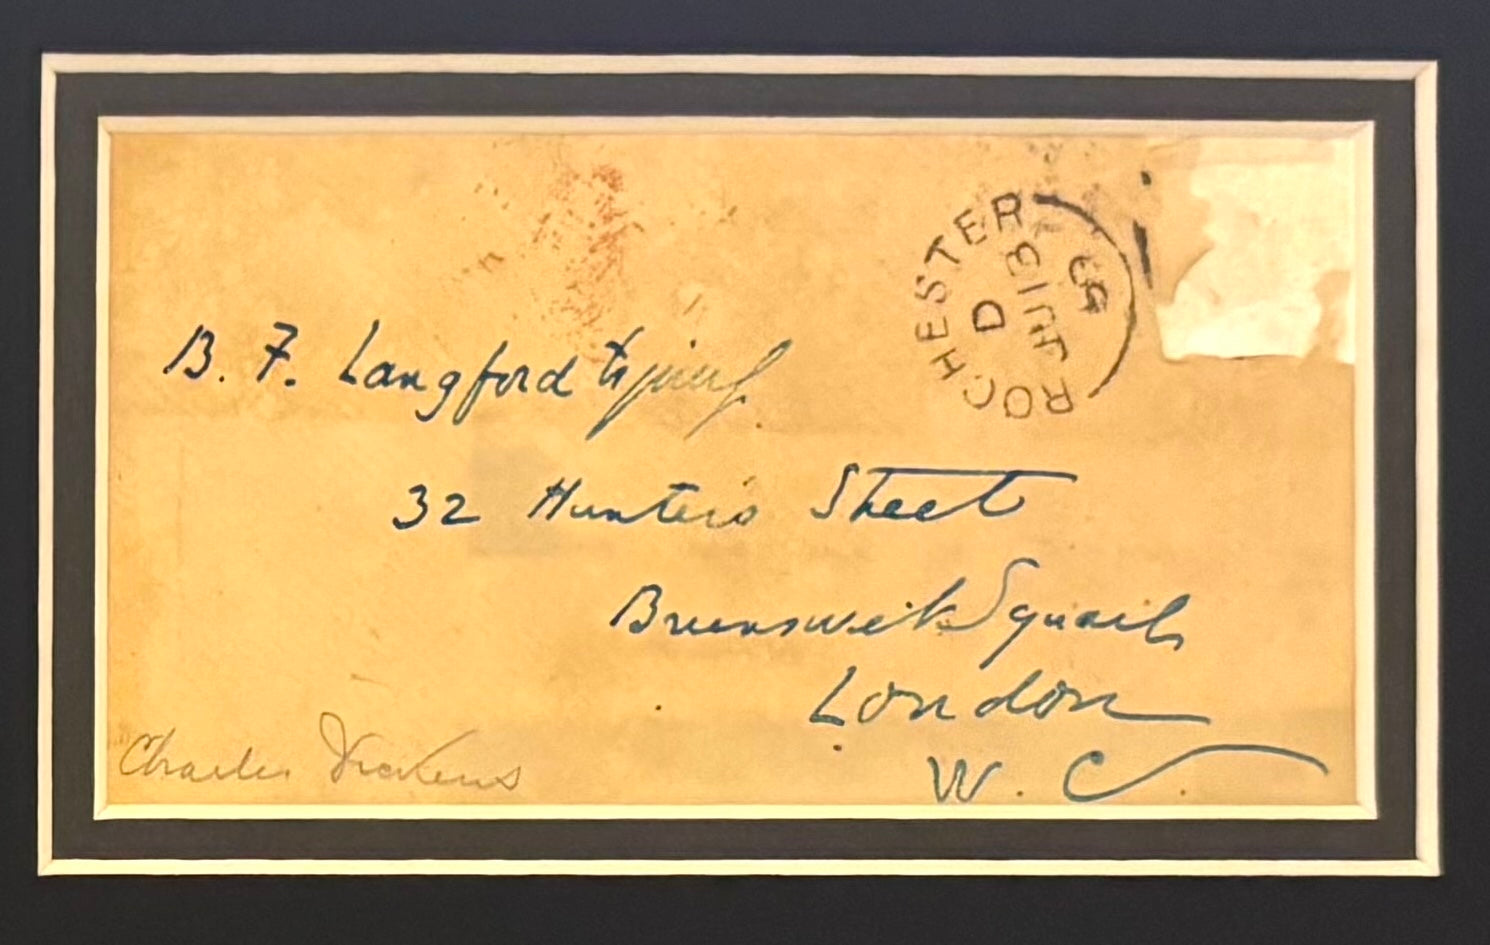 ROCHESTER
D
JU 13
B. F. Langford
32 Hunters Street
Brunswick Square
London
W. C.
Charles Dickens